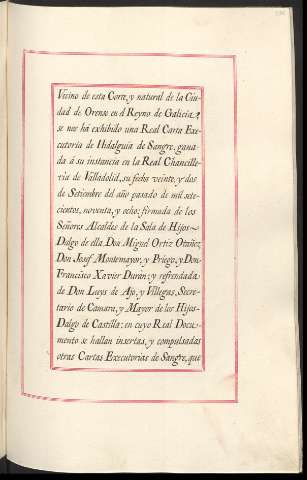 Vicino de esta Corte, y natural de la Ciu-
dad de Orense en el Reyno de Galicia, q.e
se nos há exhibido una Real Carta Exe-
cutoria de Hidalguia de Sangre, gana-
da á su instancia en la Real Chancille-
ria de Valladolid, su fecha veinte, y dos
de Setiembre del año pasado de mil sete-
cientos, noventa, y ocho; firmada de los
Señores Alcaldes de la Sala de Hijos-
Dalgo de ella Don Miguel Ortiz Otañez,
Don Josef Montemayor, y Priego, y Don
Francisco Xavier Durán; y refrendada
de Don Luys de Ajo, y Villegas, Secre-
tario de Camara, y Mayor de los Hijos-
Dalgo de Castilla: en cuyo Real Docu-
mento se hallan insertas, y compulsadas
otras Cartas Executorias de Sangre, que